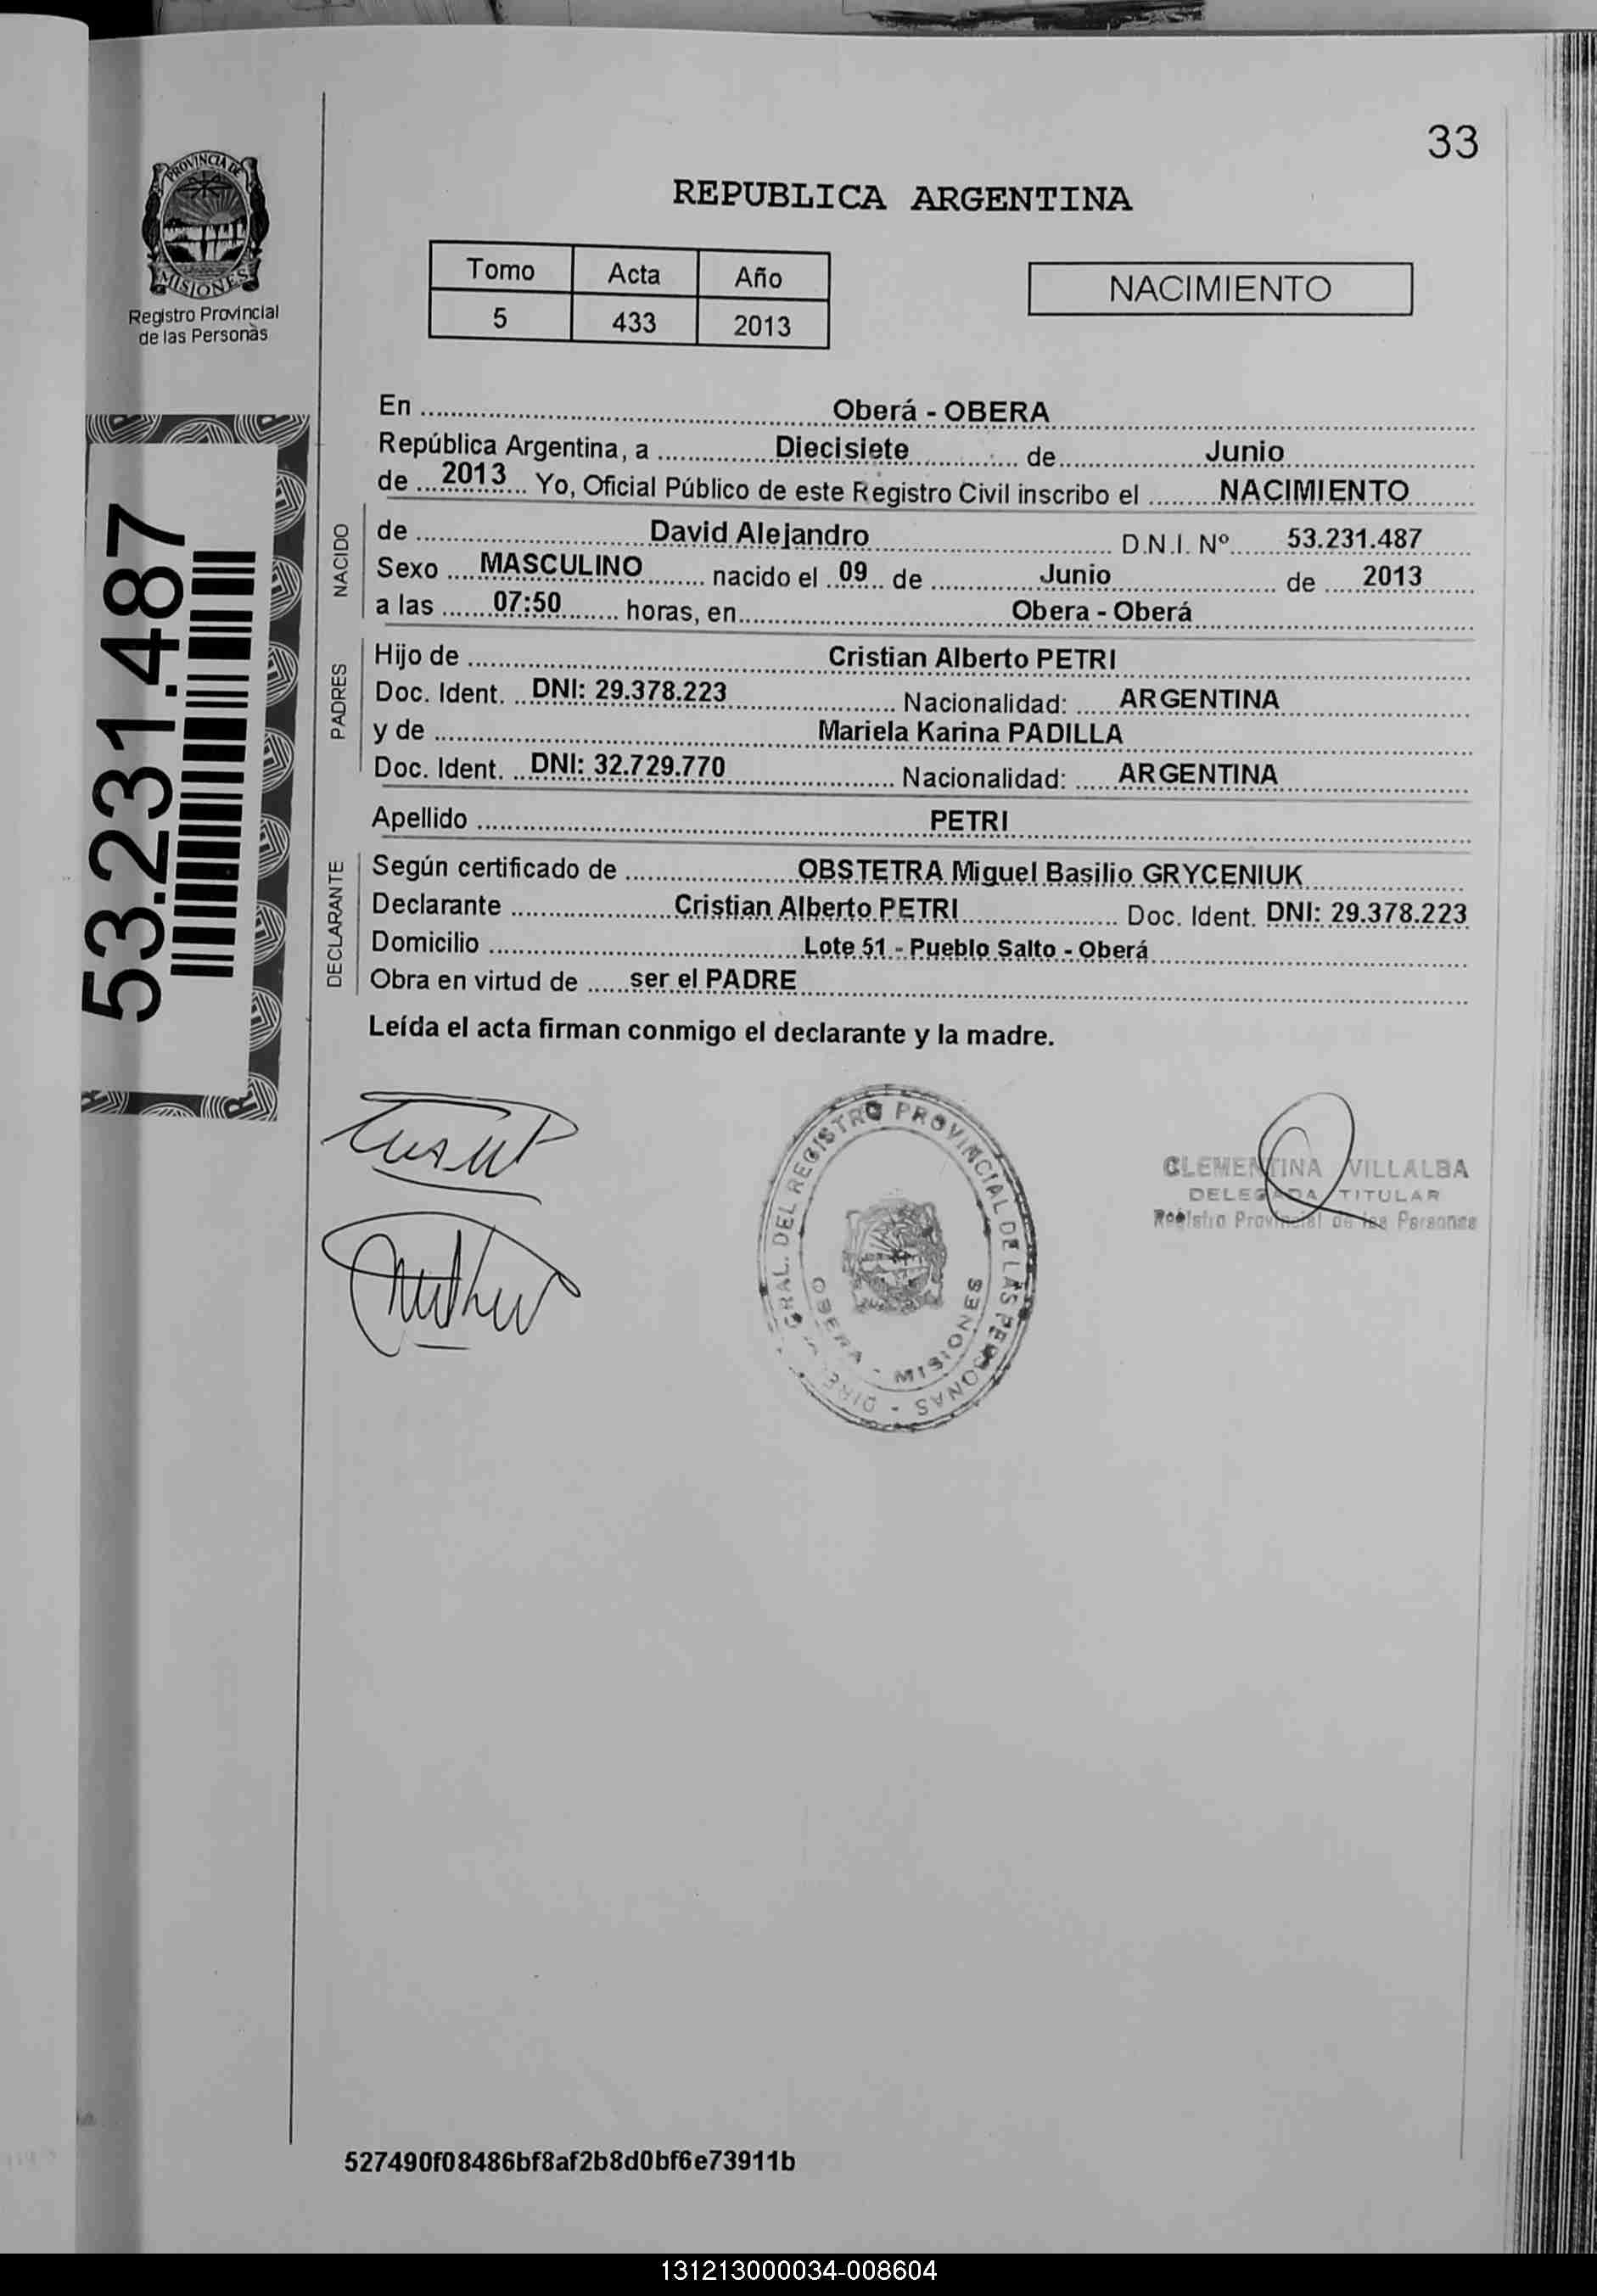 33
PROVINCIA DE
MISIONES
Registro Provincial
de las Personas
REPUBLICA ARGENTINA
Tomo Acta Año
5 433 2013
NACIMIENTO
53.231.487
En Oberá - OBERA
República Argentina, a Diecisiete de Junio
de 2013 Yo, Oficial Público de este Registro Civil inscribo el NACIMIENTO
NACIDO
de David Alejandro D.N.I. Nº 53.231.487
Sexo MASCULINO nacido el 09 de Junio de 2013
a las 07:50 horas, en Obera - Oberá
PADRES
Hijo de Cristian Alberto PETRI
Doc. Ident. DNI: 29.378.223 Nacionalidad: ARGENTINA
y de Mariela Karina PADILLA
Doc. Ident. DNI: 32.729.770 Nacionalidad: ARGENTINA
Apellido PETRI
DECLARANTE
Según certificado de OBSTETRA Miguel Basilio GRYCENIUK
Declarante Cristian Alberto PETRI Doc. Ident. DNI: 29.378.223
Domicilio Lote 51 - Pueblo Salto - Oberá
Obra en virtud de ser el PADRE
Leída el acta firman conmigo el declarante y la madre.
GRAL. DEL REGISTRO PROVINCIAL DE LAS PERSONAS
OBERA - MISIONES
CLEMENTINA VILLALBA
DELEGADA TITULAR
Registro Provincial de las Personas
527490f08486bf8af2b8d0bf6e73911b
131213000034-008604